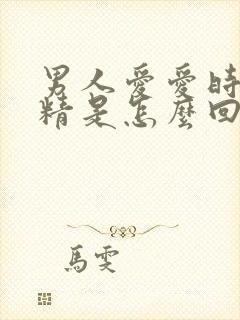 男人愛愛時
精是怎麼回
馬雯